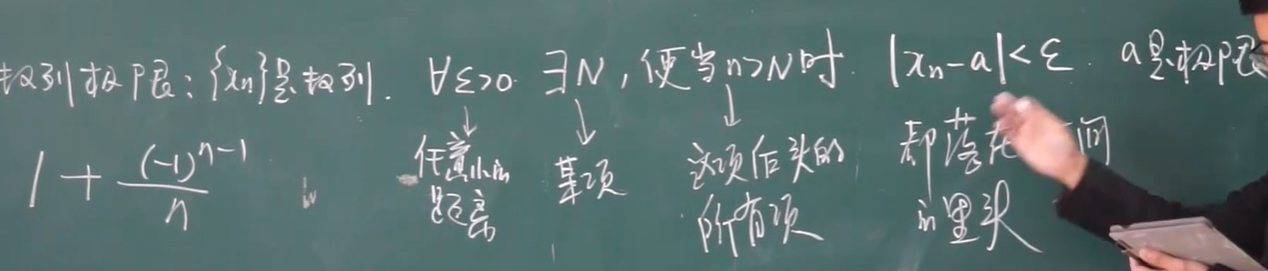 数列极限：{xₙ}是数列. ∀ε>0 ∃N, 使当n>N时 |xₙ-a|<ε. a是极限
1 + (-1)^{n-1}/n
↓ ↓ ↓
任意小的 某项 这项后头的 都落在 间
距离 所有项 的里头